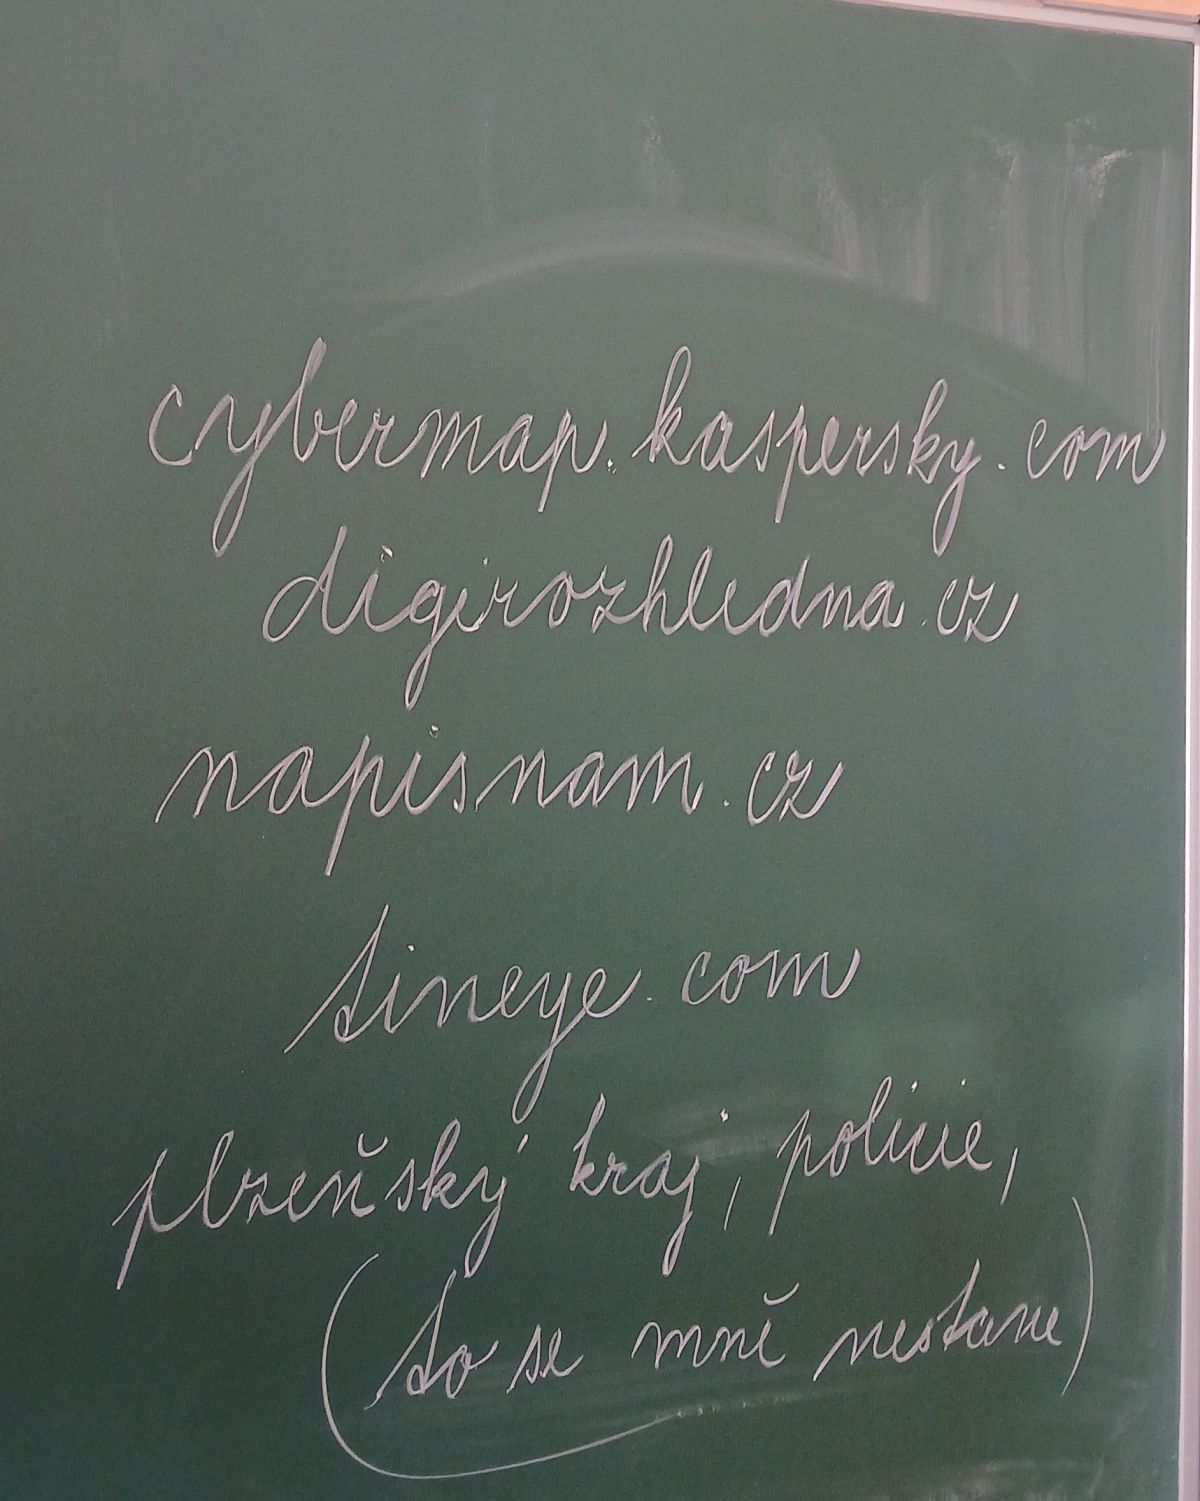 cybermap.kaspersky.com
digirozhledna.cz
napisnam.cz
tineye.com
plzeňský kraj, policie,
(to se mně nestane)